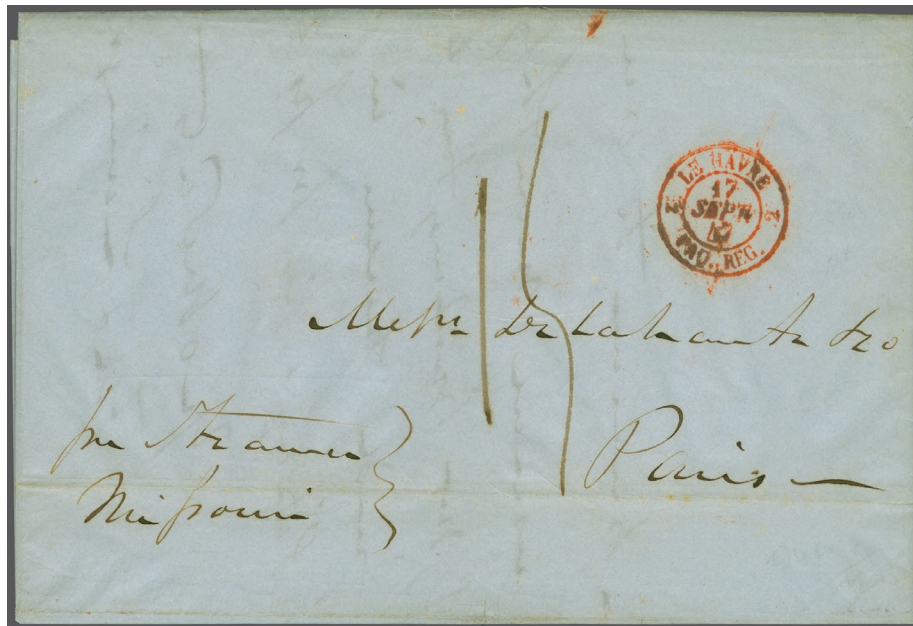 LE HAVRE
2 17 2
SEPT.
47
PAQ. REG.
15
Messrs Delahante & Co
Paris
per Steamer
Missouri